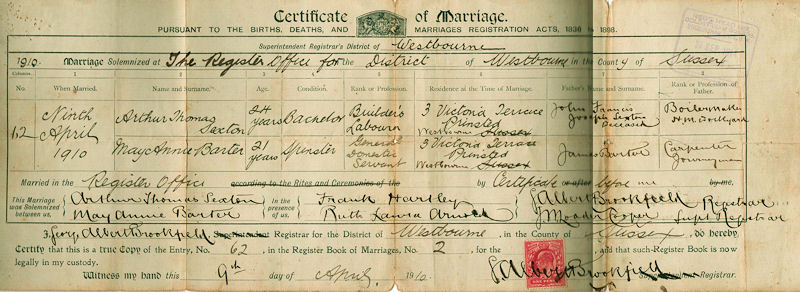 Certificate of Marriage.
PURSUANT TO THE BIRTHS, DEATHS, AND MARRIAGES REGISTRATION ACTS, 1836 to 1898.
Superintendent Registrar's District of Westbourne
1910. Marriage Solemnized at The Register Office for the District of Westbourne in the County of Sussex
Columns. 1 2 3 4 5 6 7 8
No. When Married. Name and Surname. Age. Condition. Rank or Profession. Residence at the Time of Marriage. Father's Name and Surname. Rank or Profession of Father.
62 Ninth April 1910
Arthur Thomas Sexton 24 years Bachelor Builder's Labourer 3 Victoria Terrace Prinsted Westbourne Sussex John Francis Joseph Sexton Deceased Boilermaker H.M. Dockyard
May Annie Barter 21 years Spinster General Domestic Servant 3 Victoria Terrace Prinsted Westbourne Sussex James Barter Carpenter Journeyman
Married in the Register Office according to the Rites and Ceremonies of the by Certificate or after before me by me,
This Marriage was Solemnized between us, Arthur Thomas Sexton May Annie Barter In the presence of us, Frank Hartley Ruth Laura Arnold Albert Brookfield Registrar Cooper Supt Registrar
Albert Brookfield Superintendent Registrar for the District of Westbourne, in the County of Sussex, do hereby
Certify that this is a true Copy of the Entry, No. 62, in the Register Book of Marriages, No. 2, for the and that such Register Book is now
legally in my custody.
Witness my hand this 9th day of April, 1910. Albert Brookfield Superintendent Registrar.